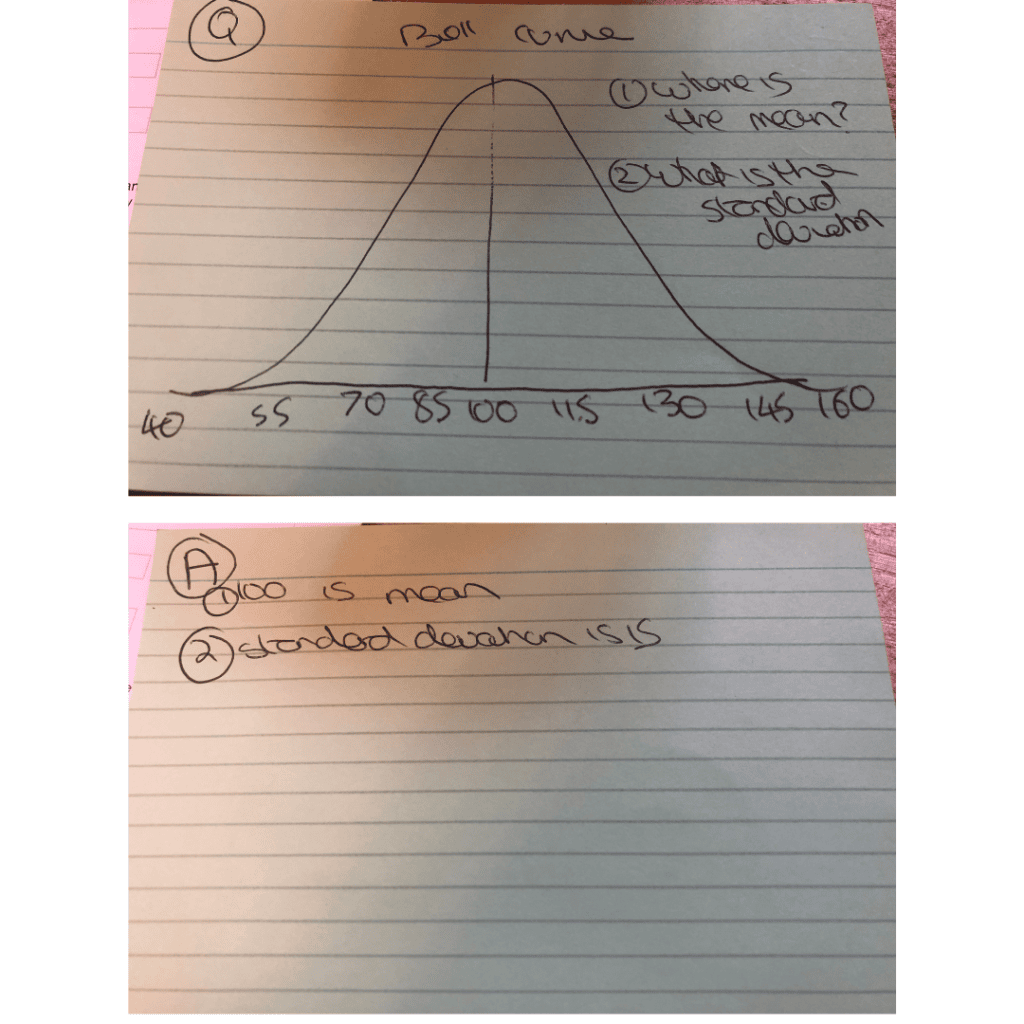 Q
Bell curve
① where is
the mean?
② what is the
standard
deviation
40 55 70 85 100 115 130 145 160
A
① 100 is mean
② standard deviation is 15